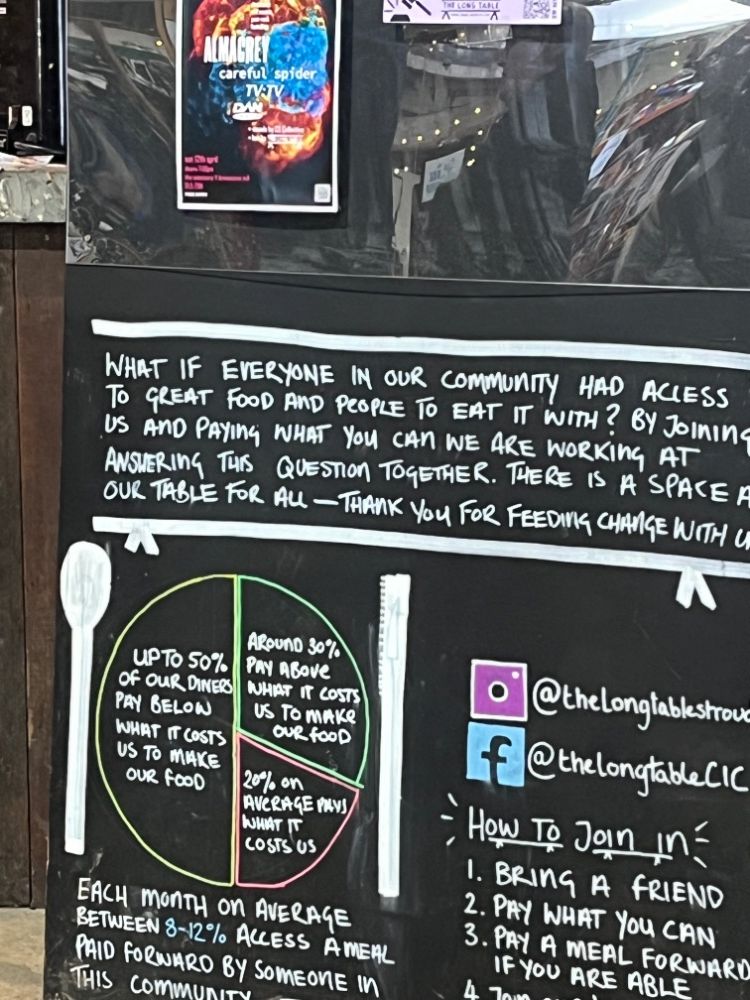 THE LONG TABLE
ALMAGREY
careful spider
TV:TV
DAN
sat 12th april
WHAT IF EVERYONE IN OUR COMMUNITY HAD ACCESS
TO GREAT FOOD AND PEOPLE TO EAT IT WITH? BY JOINING
US AND PAYING WHAT YOU CAN WE ARE WORKING AT
ANSWERING THIS QUESTION TOGETHER. THERE IS A SPACE A
OUR TABLE FOR ALL – THANK YOU FOR FEEDING CHANGE WITH U
UPTO 50%
OF OUR DINERS
PAY BELOW
WHAT IT COSTS
US TO MAKE
OUR FOOD
AROUND 30%
PAY ABOVE
WHAT IT COSTS
US TO MAKE
OUR FOOD
20% ON
AVERAGE PAYS
WHAT IT
COSTS US
@thelongtablestrou
@thelongtableCIC
HOW TO JOIN IN
1. BRING A FRIEND
2. PAY WHAT YOU CAN
3. PAY A MEAL FORWARD
IF YOU ARE ABLE
4. Join
EACH MONTH ON AVERAGE
BETWEEN 8-12% ACCESS A MEAL
PAID FORWARD BY SOMEONE IN
THIS COMMUNITY